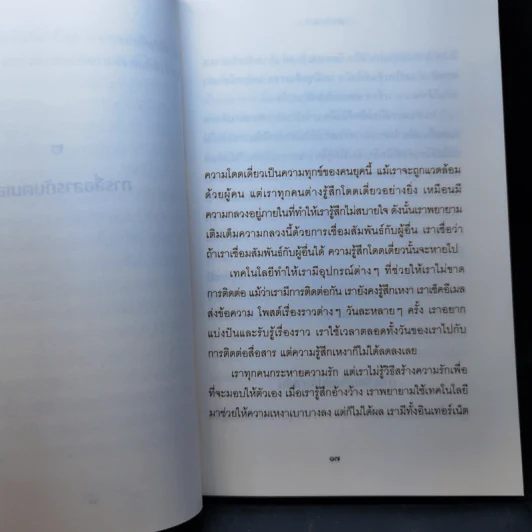 ความโดดเดี่ยวเป็นความทุกข์ของคนยุคนี้ แม้เราจะถูกแวดล้อม
ด้วยผู้คน แต่เราทุกคนต่างรู้สึกโดดเดี่ยวอย่างยิ่ง เหมือนมี
ความกลวงอยู่ภายในที่ทำให้เรารู้สึกไม่สบายใจ ดังนั้นเราพยายาม
เติมเต็มความกลวงนี้ด้วยการเชื่อมสัมพันธ์กับผู้อื่น เราเชื่อว่า
ถ้าเราเชื่อมสัมพันธ์กับผู้อื่นได้ ความรู้สึกโดดเดี่ยวนั้นจะหายไป
เทคโนโลยีทำให้เรามีอุปกรณ์ต่างๆ ที่ช่วยให้เราไม่ขาด
การติดต่อ แม้ว่าเรามีการติดต่อกัน เรายังคงรู้สึกเหงา เราเช็คอีเมล
ส่งข้อความ โพสต์เรื่องราวต่างๆ วันละหลายๆ ครั้ง เราอยาก
แบ่งปันและรับรู้เรื่องราว เราใช้เวลาตลอดทั้งวันของเราไปกับ
การติดต่อสื่อสาร แต่ความรู้สึกเหงาก็ไม่ได้ลดลงเลย
เราทุกคนกระหายความรัก แต่เราไม่รู้วิธีสร้างความรักเพื่อ
ที่จะมอบให้ตัวเอง เมื่อเรารู้สึกอ้างว้าง เราพยายามใช้เทคโนโลยี
มาช่วยให้ความเหงาเบาบางลง แต่ก็ไม่ได้ผล เรามีทั้งอินเทอร์เน็ต
๑๗